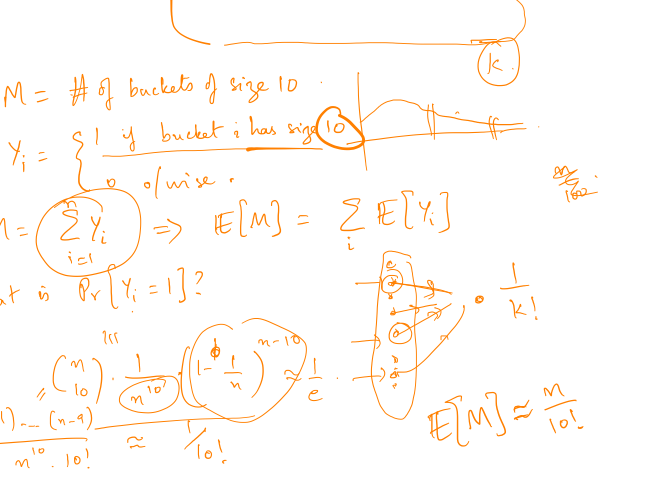 k
M = # of buckets of size 10
Y_i = { 1 if bucket i has size 10
0 o/wise.
= \sum_{i=1}^{n} Y_i => E[M] = \sum_i E[Y_i]
is Pr[Y_i = 1]?
= \binom{n}{10} · \frac{1}{n^{10}} · (1 - \frac{1}{n})^{n-10} ≈ \frac{1}{e} · \frac{1}{k!}
\frac{1) -- (n-9)}{n^{10} · 10!} ≈ 1/10!
E[M] ≈ \frac{n}{10!}